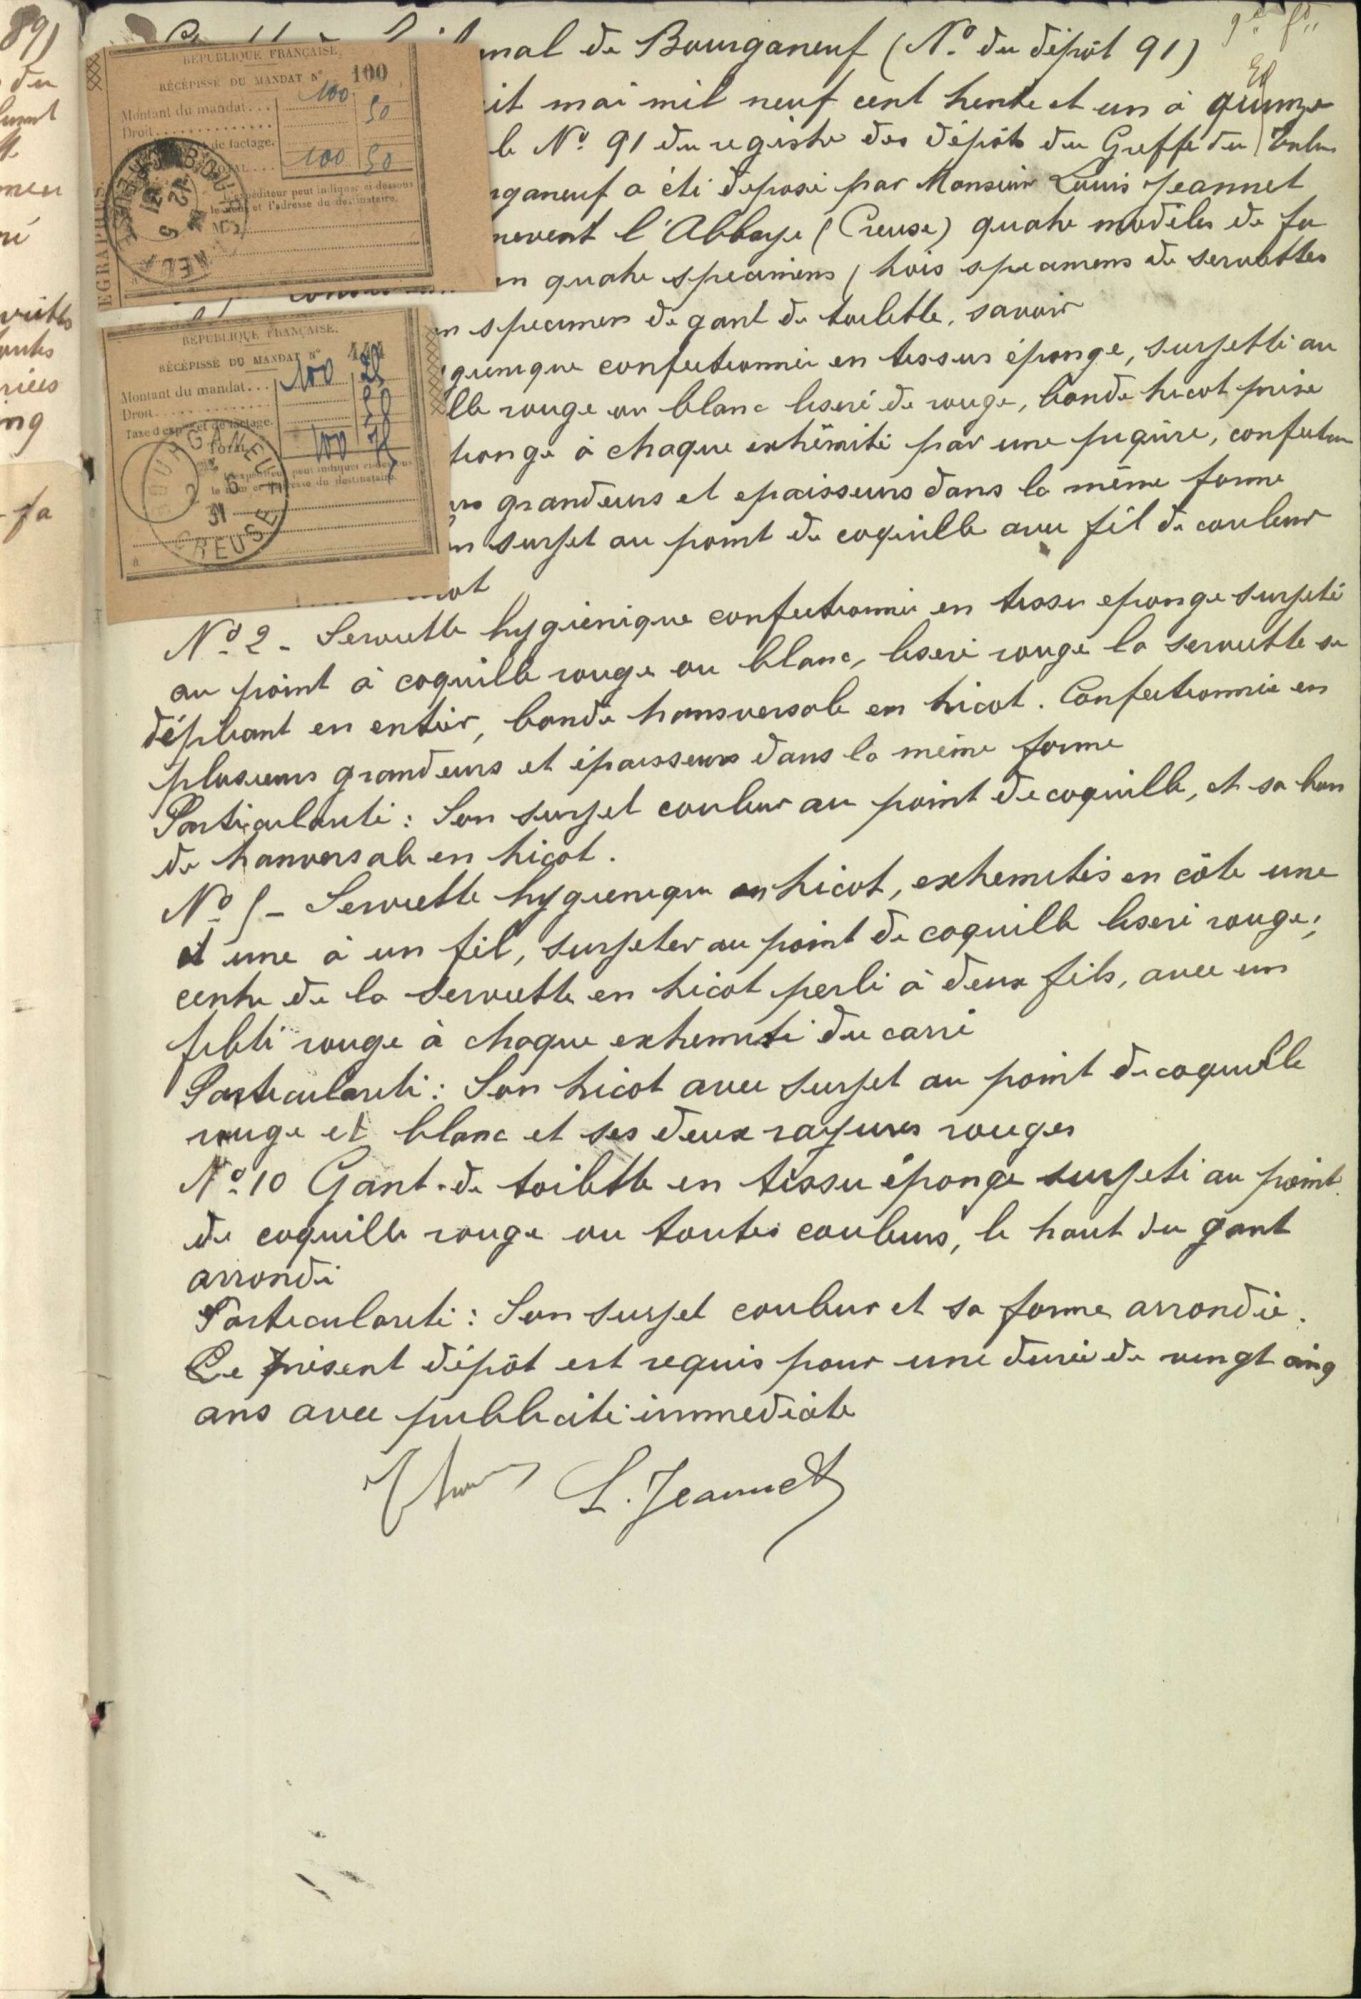 nal de Bourganeuf (N° du dépôt 91)
it mai mil neuf cent trente et un à quinze
le N° 91 du registre des dépôts du Greffe du
rganeuf a été déposé par Monsieur Louis Jeannet
nevent l'Abbaye (Creuse) quatre modèles de fa
en quatre specimens (trois specimens de serviettes
n specimen de gant de toilette, savoir
gienique confectionnée en tissus éponge, surjetté au
lle rouge ou blanc liseré de rouge, bande tricot prise
ponge à chaque extrêmité par une piqûre, confection
grandeurs et epaisseurs dans la même forme
n surjet au point de coquille avec fil de couleur
ot
N° 2 - Serviette hygiènique confectionnée en tissu eponge surjeté
au point à coquille rouge ou blanc, liseré rouge la serviette se
dépliant en entier, bande transversale en tricot. Confectionnée en
plusieurs grandeurs et épaisseurs dans la même forme
Particularité : Son surjet couleur au point de coquille, et sa ban
de tranversale en tricot.
N° 5 - Serviette hygienique en tricot, extremités en côte une
et une à un fil, surjeter au point de coquille liseré rouge,
centre de la serviette en tricot perlé à deux fils, avec un
filet rouge à chaque extremité du carré
Particularité : Son tricot avec surjet au point de coquille
rouge et blanc et ses deux rayures rouges
N° 10 Gant de toilette en tissu éponge surjeté au point
de coquille rouge ou toutes couleurs, le haut du gant
arrondi
Particularité : Son surjet couleur et sa forme arrondie.
Le présent dépôt est requis pour une durée de vingt cinq
ans avec publicité immediate
L. Jeannet
REPUBLIQUE FRANÇAISE.
RÉCÉPISSÉ DU MANDAT N° 100
Montant du mandat... 100
Droit 50
de factage.
100 50
l'expéditeur peut indiquer ci-dessous
le nom et l'adresse du destinataire.
M
EGRAPHES
REPUBLIQUE FRANÇAISE.
RÉCÉPISSÉ DU MANDAT N°
Montant du mandat... 100
Droit
Taxe d'exprès et de factage.
Total 100
BOURGANEUF
2 5
31
CREUSE
89)
du
ng
fa